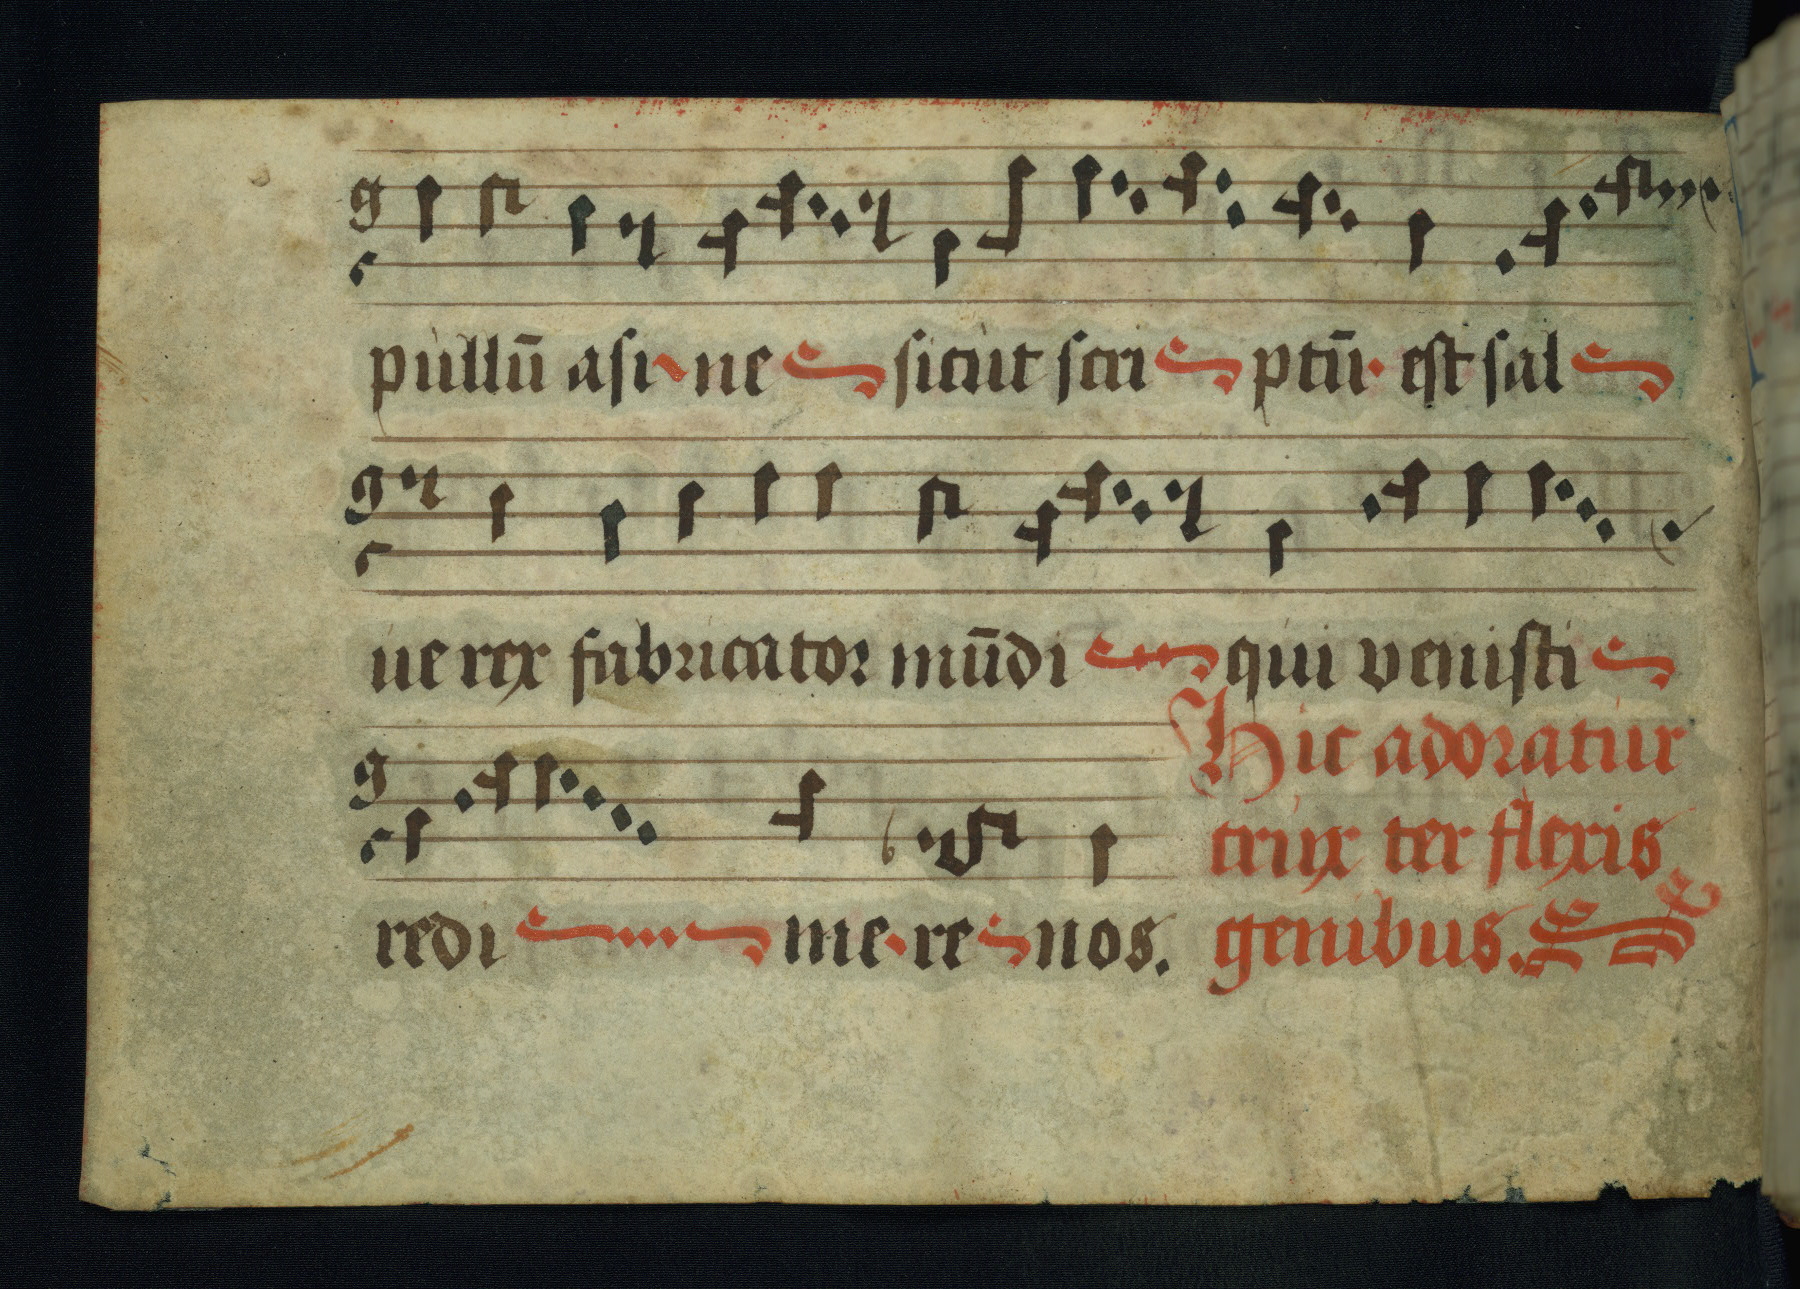 pullū asi ne sicut scri ptū est sal
ue rex fabricator mūdi qui venisti
redi me re nos.
Hic adoratur
crux ter flexis
genibus.